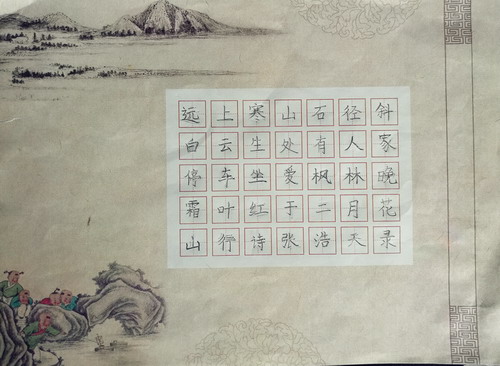 远上寒山石径斜
白云生处有人家
停车坐爱枫林晚
霜叶红于二月花
山行诗张浩天录